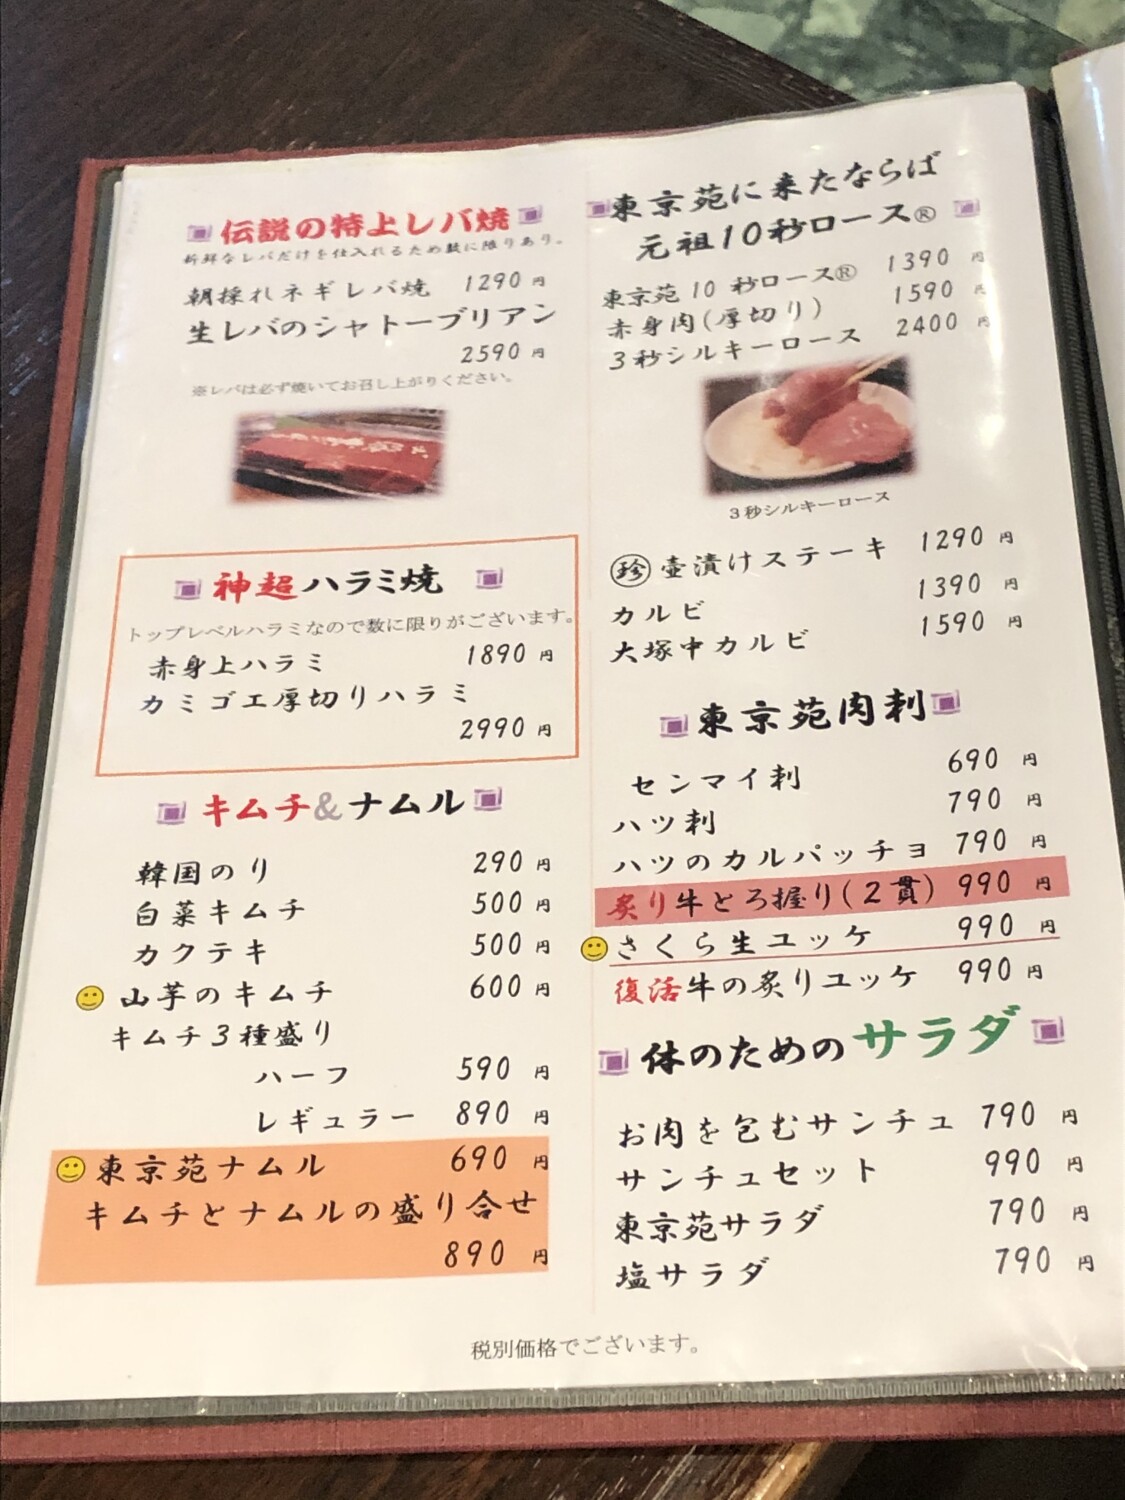 伝説の特上レバ焼
新鮮なレバだけを仕入れるため数に限りあり。
朝採れネギレバ焼 1290円
生レバのシャトーブリアン
2590円
※レバは必ず焼いてお召し上がりください。
神超ハラミ焼
トップレベルハラミなので数に限りがございます。
赤身上ハラミ 1890円
カミゴエ厚切りハラミ
2990円
キムチ&ナムル
韓国のり 290円
白菜キムチ 500円
カクテキ 500円
山芋のキムチ 600円
キムチ3種盛り
ハーフ 590円
レギュラー 890円
東京苑ナムル 690円
キムチとナムルの盛り合せ
890円
東京苑に来たならば
元祖10秒ロース®
東京苑10秒ロース® 1390円
赤身肉(厚切り) 1590円
3秒シルキーロース 2400円
3秒シルキーロース
珍 壺漬けステーキ 1290円
カルビ 1390円
大塚中カルビ 1590円
東京苑肉刺
センマイ刺 690円
ハツ刺 790円
ハツのカルパッチョ 790円
炙り牛とろ握り(2貫) 990円
さくら生ユッケ 990円
復活牛の炙りユッケ 990円
体のためのサラダ
お肉を包むサンチュ 790円
サンチュセット 990円
東京苑サラダ 790円
塩サラダ 790円
税別価格でございます。